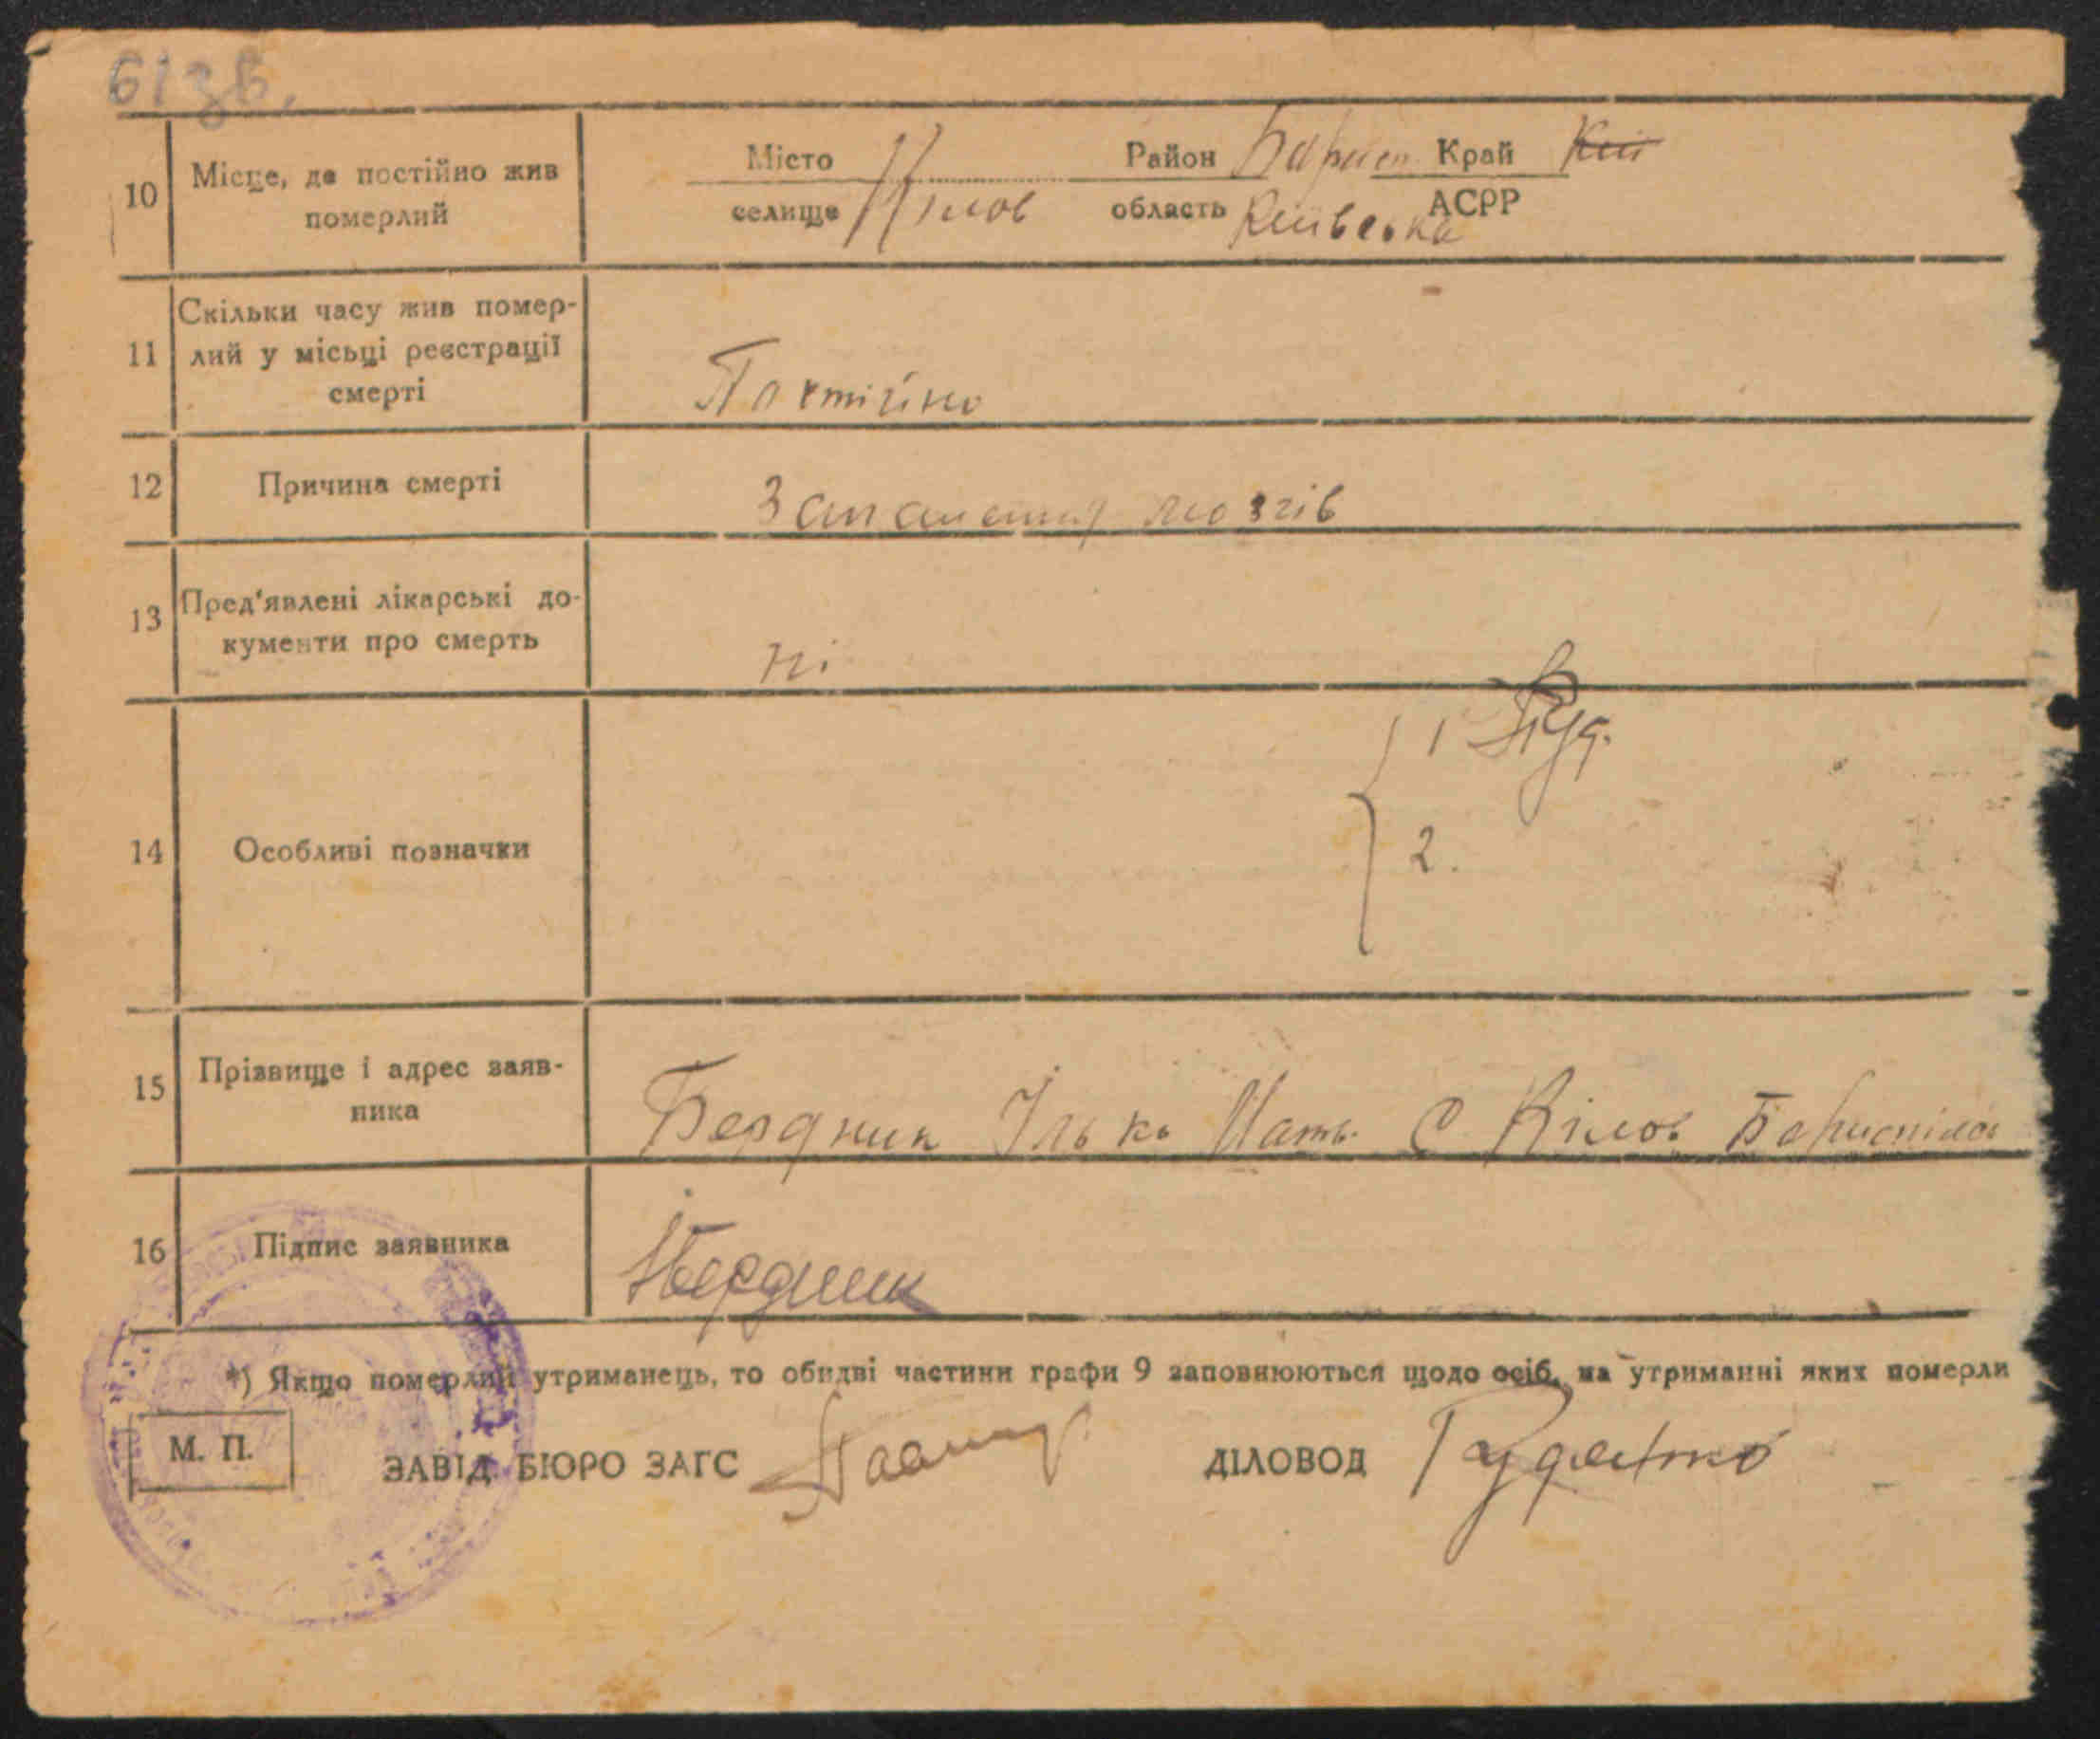 61зв.
10 Місце, де постійно жив померлий
Місто
селище Кілов
Район Барисп. Край
область Київська АСРР
11 Скільки часу жив помер-
лий у місьці реєстрації
смерті
Постійно
12 Причина смерті
Запалення мозгів
13 Пред'явлені лікарські до-
кументи про смерть
ні
14 Особливі позначки
1
2.
15 Прізвище і адрес заяв-
ника
Бердник Ілько С Кілов Бориспілсь
16 Підпис заявника
Бердник
*) Якщо померлий утриманець, то обидві частини графи 9 заповнюються щодо осіб, на утриманні яких померли
М. П.
ЗАВІД. БЮРО ЗАГС
ДІЛОВОД